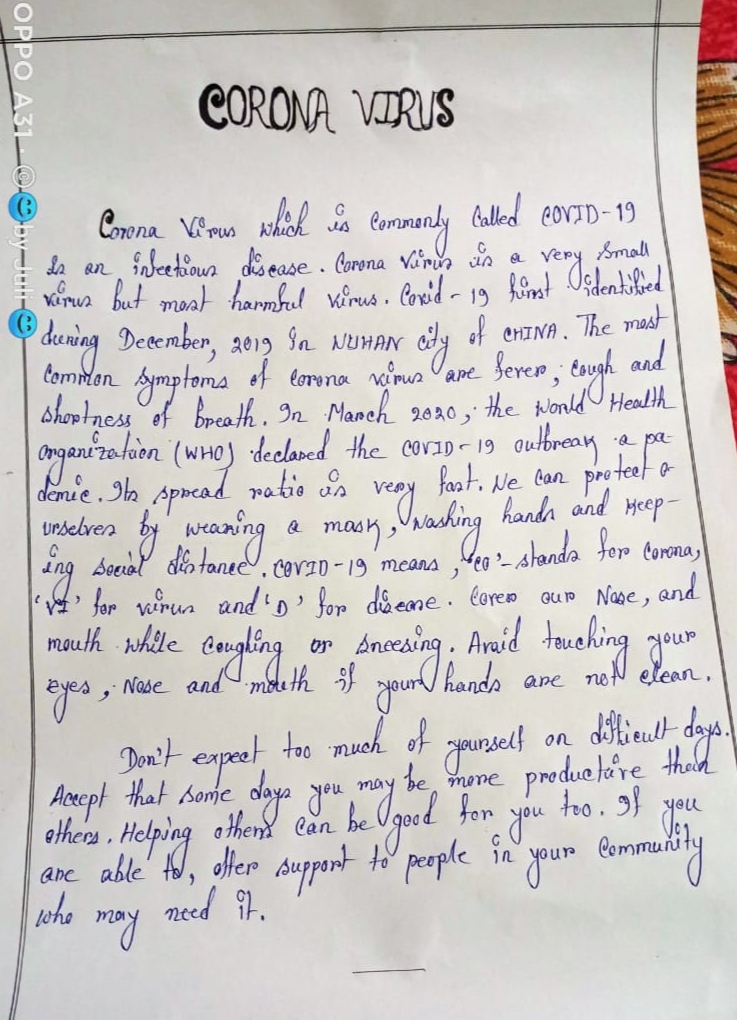 OPPO A31 · © by Juli
CORONA VIRUS
Corona Virus which is Commonly Called COVID-19
Is an infectious disease. Corona Virus is a very small
virus but most harmful virus. Covid-19 first identified
during December, 2019 in WUHAN city of CHINA. The most
Common symptoms of corona virus are fever, cough and
shortness of breath. In March 2020, the World Health
organization (WHO) declared the COVID-19 outbreak a pa-
demic. Its spread ratio is very fast. We can protect o-
urselves by wearing a mask, washing hands and keep-
ing social distance. COVID-19 means, 'co'-stands for corona,
'VI' for virus and 'D' for disease. Cover our Nose, and
mouth while coughing or sneesing. Avoid touching your
eyes, Nose and mouth if your hands are not clean.
Don't expect too much of yourself on difficult days.
Accept that some days you may be more productive than
others. Helping others can be good for you too. If you
are able to, offer support to people in your Community
who may need it.